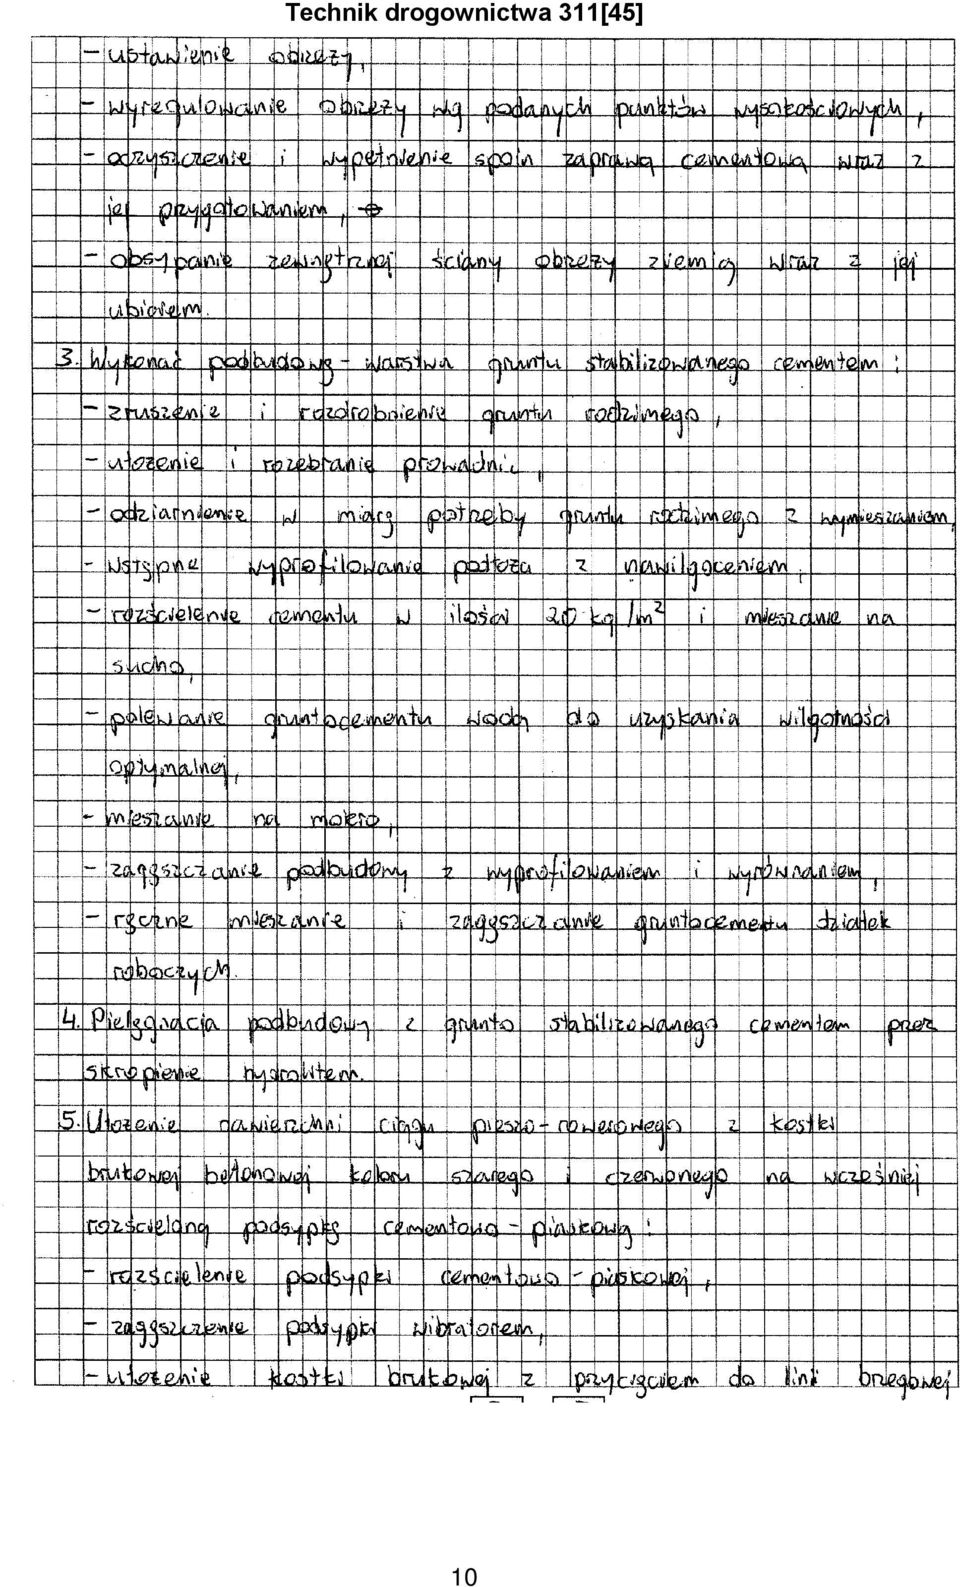 Technik drogownictwa 311[45]
- ustawienie obrzeży,
- wyregulowanie obrzeży wg podanych punktów wysokościowych,
- oczyszczenie i wypełnienie spoin zaprawą cementową wraz z
jej przygotowaniem,
- obsypanie zewnętrznej ściany obrzeży ziemią wraz z jej
ubiciem.
3. Wykonać podbudowę - warstwa gruntu stabilizowanego cementem:
- zruszenie i rozdrobnienie gruntu rodzimego,
- ułożenie i rozebranie prowadnic,
- odziarnienie w miarę potrzeby gruntu rodzimego z wymieszaniem,
- wstępne wyprofilowanie podłoża z nawilgoceniem,
- rozścielenie cementu w ilości 20 kg/m² i mieszanie na
sucho,
- polewanie gruntocementu wodą do uzyskania wilgotności
optymalnej,
- mieszanie na mokro,
- zagęszczanie podbudowy z wyprofilowaniem i wyrównaniem,
- ręczne mieszanie i zagęszczanie gruntocementu działek
roboczych.
4. Pielęgnacja podbudowy z grunto stabilizowanego cementem przez
skropienie hydrolitem.
5. Ułożenie nawierzchni ciągu pieszo-rowerowego z kostki
brukowej betonowej koloru szarego i czerwonego na wcześniej
rozścieloną podsypkę cementowo-piaskową:
- rozścielenie podsypki cementowo-piaskowej,
- zagęszczenie podsypki wibratorem,
- ułożenie kostki brukowej z przycięciem do linii brzegowej
10